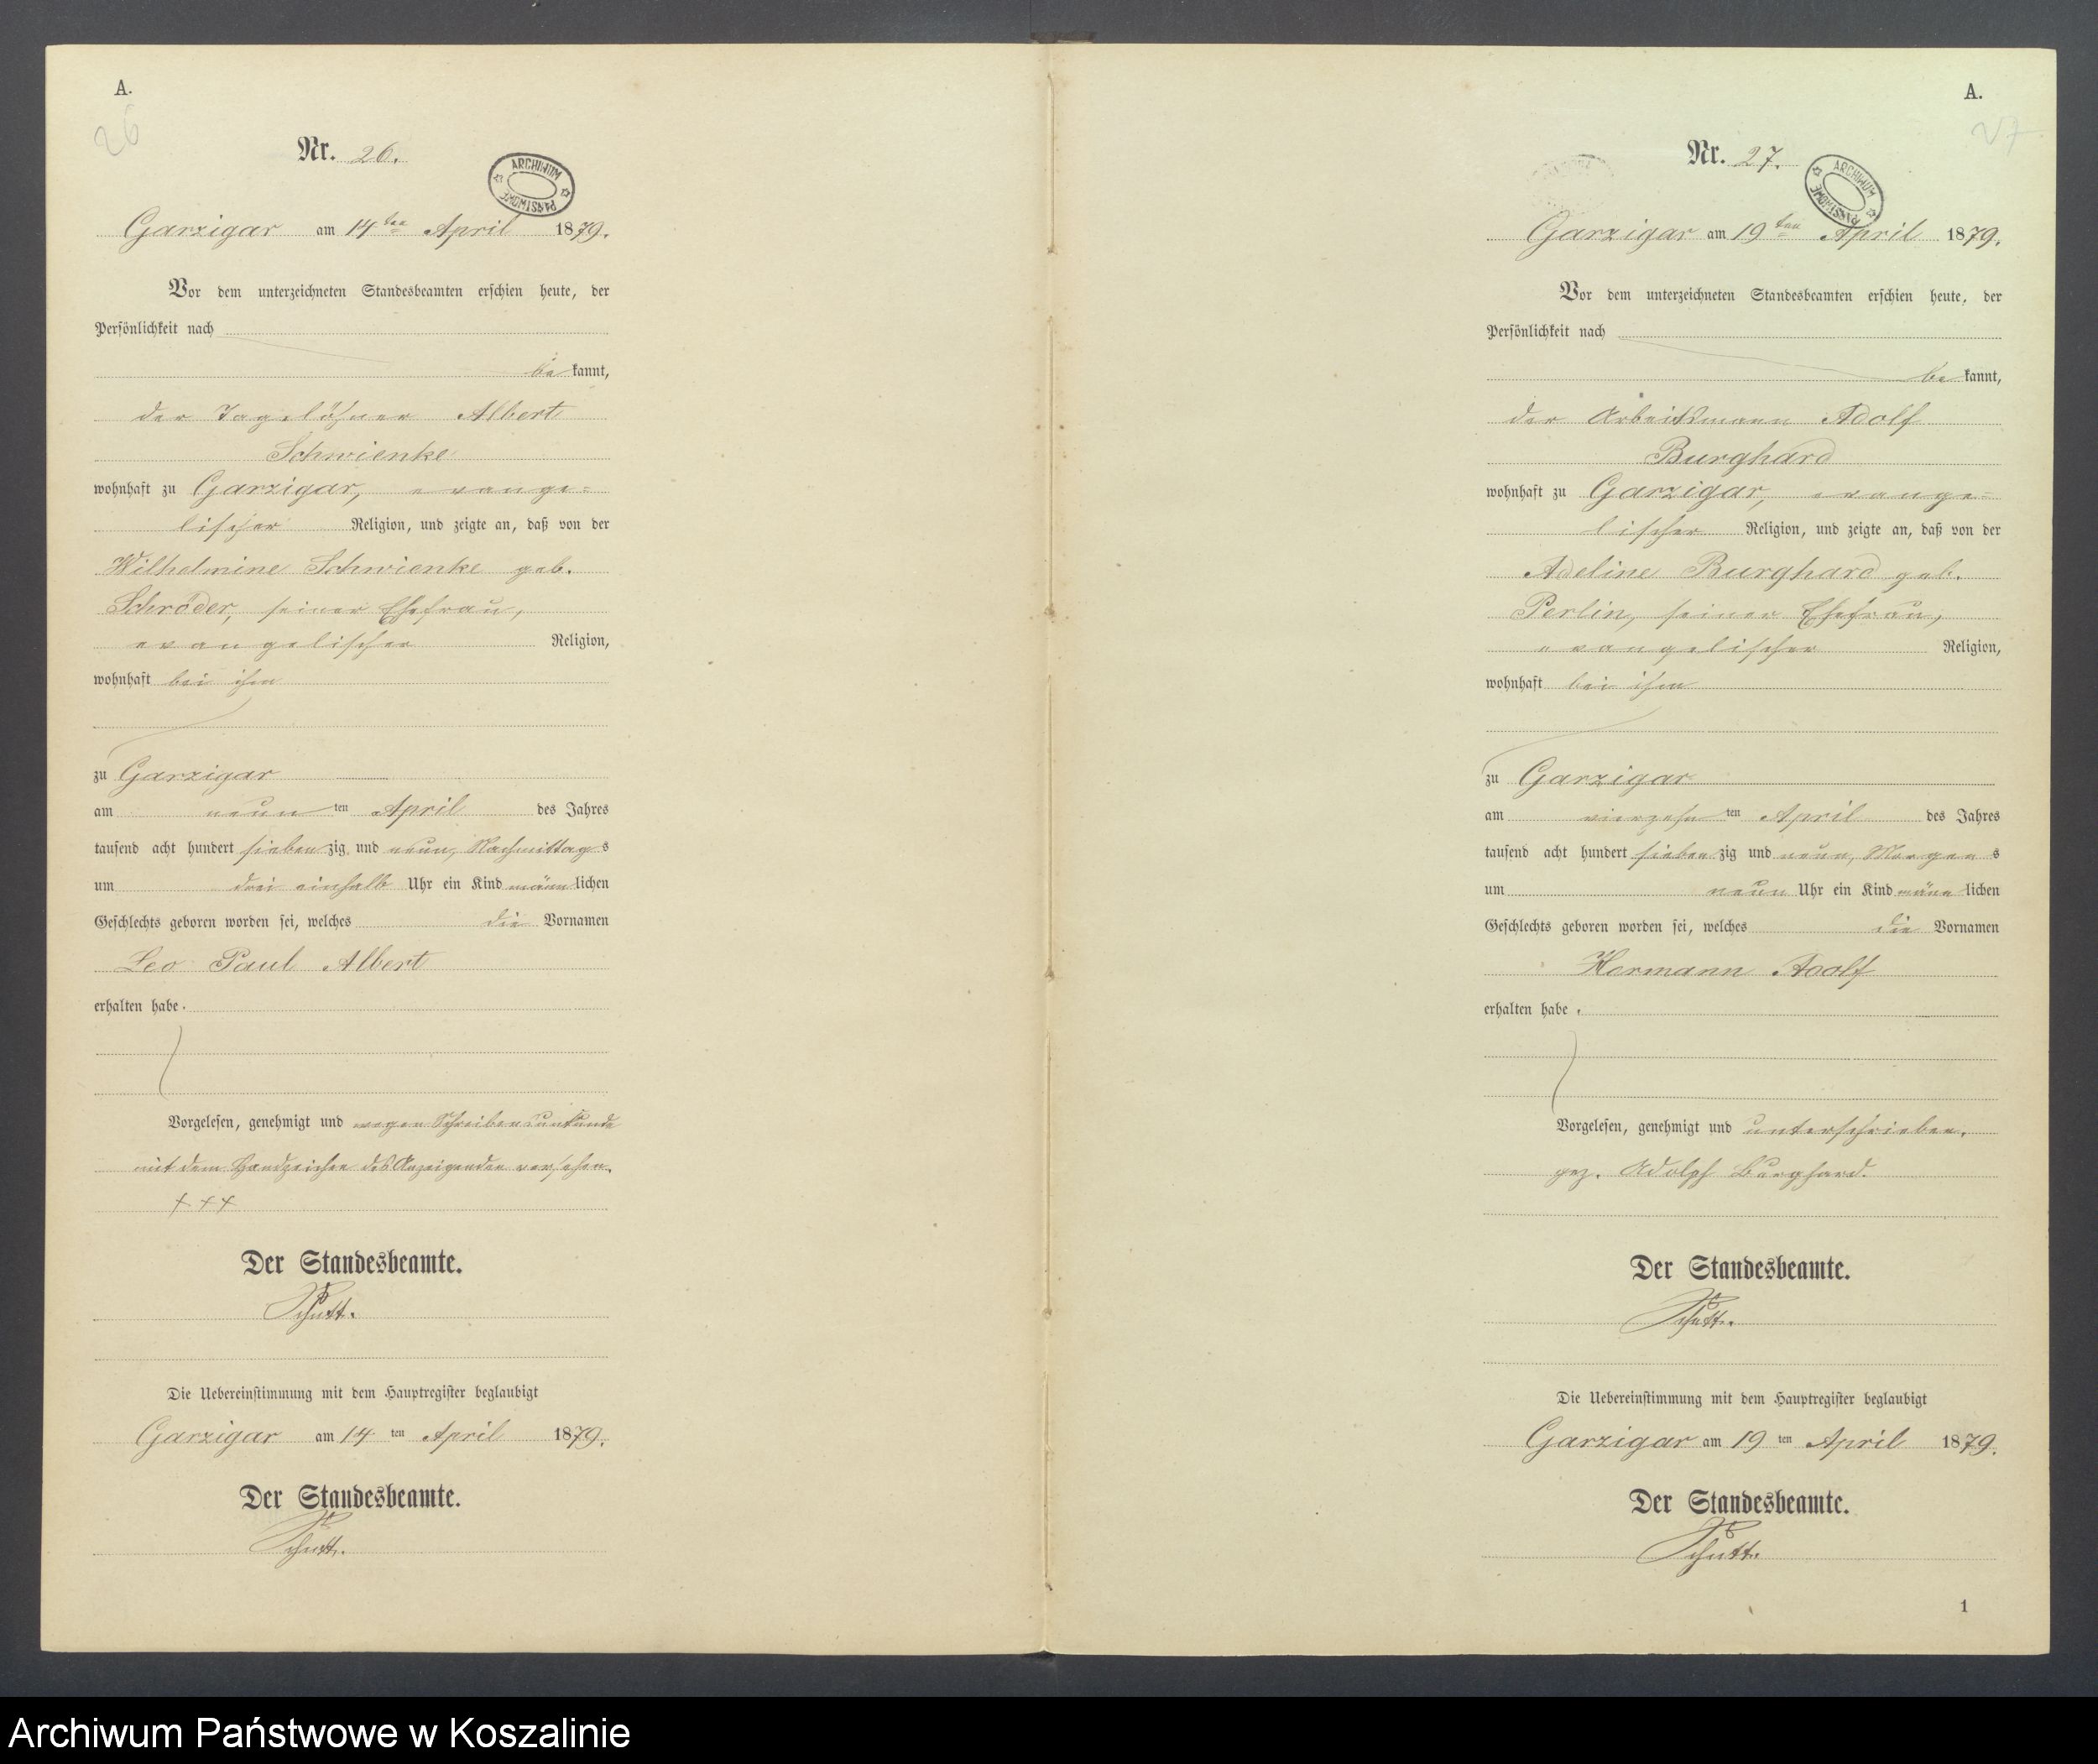 A.
26
Nr. 26.
ARCHIWUM PAŃSTWOWE
Garzigar am 14ten April 1879.
Vor dem unterzeichneten Standesbeamten erschien heute, der
Persönlichkeit nach
be kannt,
der Tagelöhner Albert
Schwienke
wohnhaft zu Garzigar, evange=
lischer Religion, und zeigte an, daß von der
Wilhelmine Schwienke geb.
Schröder, seiner Ehefrau,
evangelischer Religion,
wohnhaft bei ihm
zu Garzigar
am neun ten April des Jahres
tausend acht hundert sieben zig und neun, Nachmittag s
um drei einhalb Uhr ein Kind männ lichen
Geschlechts geboren worden sei, welches die Vornamen
Leo Paul Albert
erhalten habe.
Vorgelesen, genehmigt und wegen Schreibensunkunde
mit dem Handzeichen des Anzeigenden versehen.
+++
Der Standesbeamte.
Schütt.
Die Uebereinstimmung mit dem Hauptregister beglaubigt
Garzigar am 14 ten April 1879.
Der Standesbeamte.
Schütt.
A.
27
Nr. 27.
ARCHIWUM PAŃSTWOWE
Garzigar am 19ten April 1879.
Vor dem unterzeichneten Standesbeamten erschien heute, der
Persönlichkeit nach
be kannt,
der Arbeitsmann Adolf
Burghard
wohnhaft zu Garzigar, evange=
lischer Religion, und zeigte an, daß von der
Adeline Burghard geb.
Perlin, seiner Ehefrau,
evangelischer Religion,
wohnhaft bei ihm
zu Garzigar
am vierzehn ten April des Jahres
tausend acht hundert sieben zig und neun, Morgen s
um neun Uhr ein Kind männ lichen
Geschlechts geboren worden sei, welches die Vornamen
Hermann Adolf
erhalten habe.
Vorgelesen, genehmigt und unterschrieben.
gez. Adolph Burghard.
Der Standesbeamte.
Schütt.
Die Uebereinstimmung mit dem Hauptregister beglaubigt
Garzigar am 19 ten April 1879.
Der Standesbeamte.
Schütt.
1
Archiwum Państwowe w Koszalinie